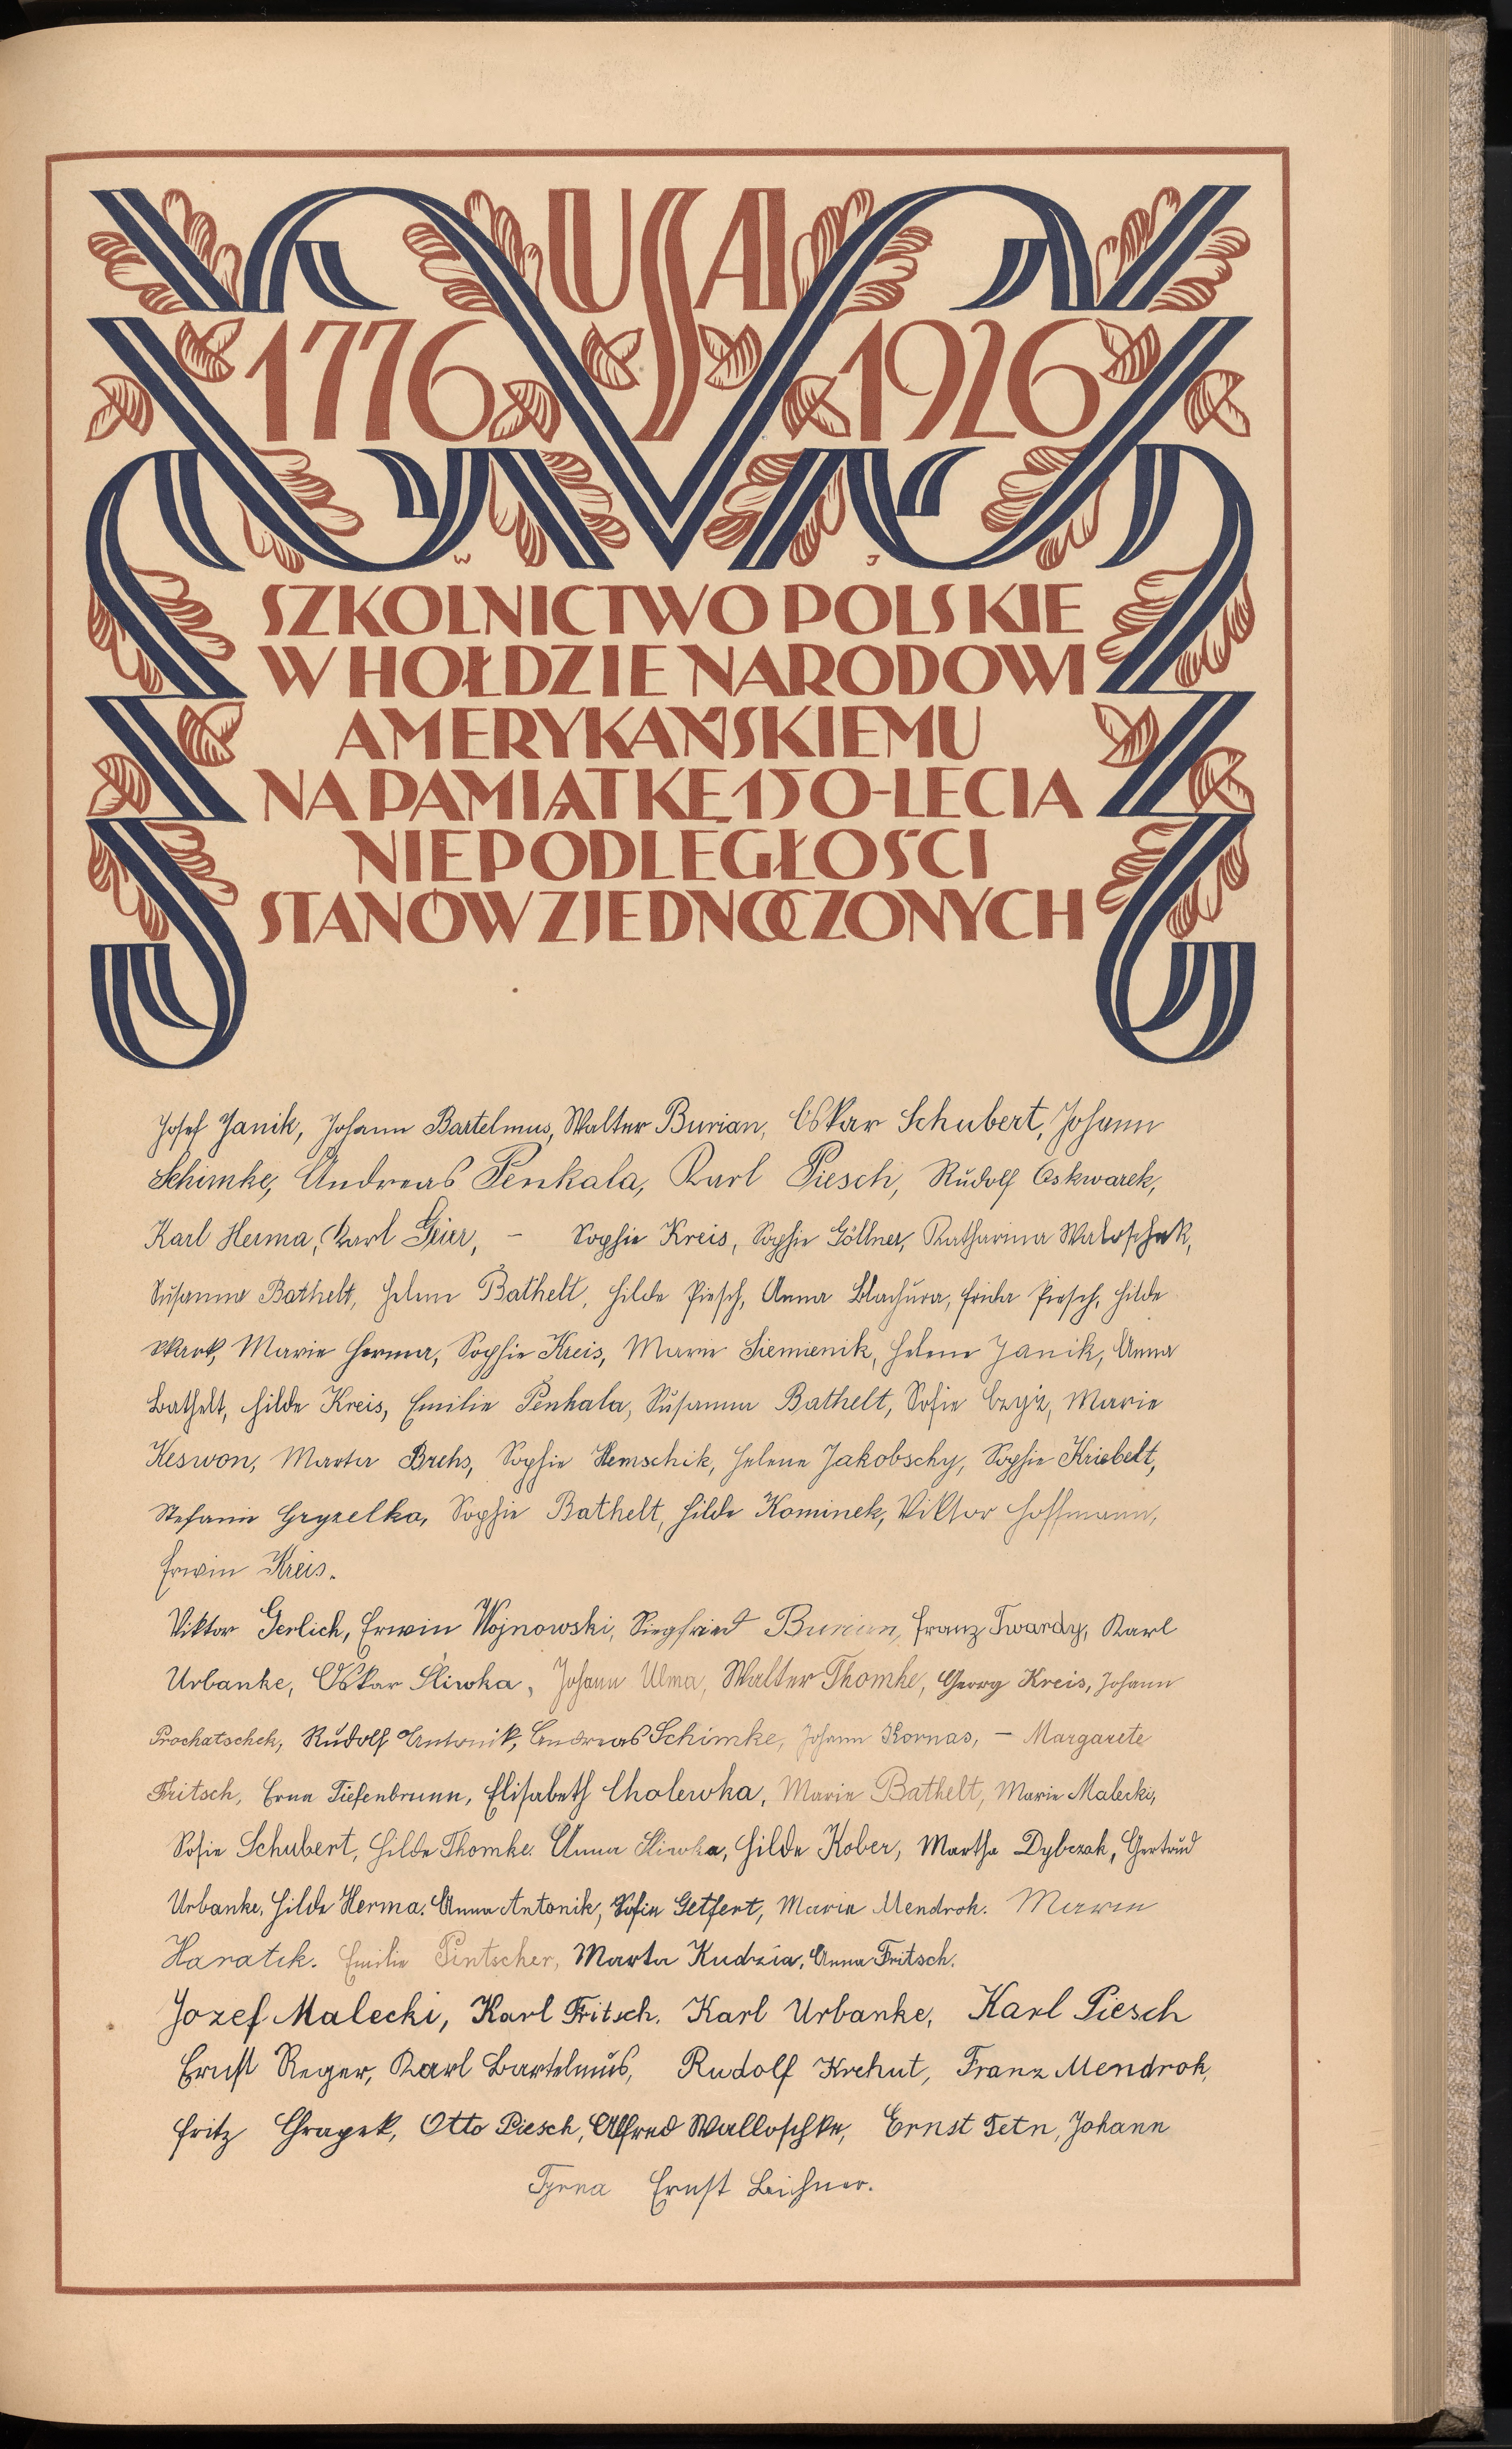 USA
1776 1926
W J
SZKOLNICTWO POLSKIE
W HOŁDZIE NARODOWI
AMERYKAŃSKIEMU
NA PAMIĄTKĘ 150-LECIA
NIEPODLEGŁOŚCI
STANÓW ZJEDNOCZONYCH
Josef Janik, Johann Bartelmus, Walter Burian, Oskar Schubert, Johann
Schimke, Andreas Penkala, Karl Piesch, Rudolf Oskwarek,
Karl Herma, Karl Geier, – Sophie Kreis, Sophie Göllner, Katharina Waloschek,
Susanna Bathelt, Helene Bathelt, Hilde Piesch, Anna Blachura, Frida Piesch, Hilde
Wark, Marie Herma, Sophie Kreis, Marie Siemienik, Helene Janik, Anna
Bathelt, Hilde Kreis, Emilie Penkala, Susanna Bathelt, Sofie Czyż, Marie
Keswon, Marta Brehs, Sophie Hemschik, Helene Jakobschy, Sophie Kriebelt,
Stefanie Gryzelka, Sophie Bathelt, Hilde Kominek, Viktor Hoffmann,
Erwin Kreis.
Viktor Gerlich, Erwin Wojnowski, Siegfried Burian, Franz Twardy, Karl
Urbanke, Oskar Śliwka, Johann Ulma, Walter Thomke, Georg Kreis, Johann
Prochatschek, Rudolf Antonik, Andreas Schimke, Johann Kornas, – Margarete
Fritsch, Erna Tiefenbrunn, Elisabeth Cholewka, Marie Bathelt, Marie Malecki,
Sofie Schubert, Hilde Thomke. Anna Śliwka, Hilde Kober, Martha Dybczak, Gertrud
Urbanke, Hilde Herma. Anna Antonik, Sofie Getfert, Marie Mendrok. Marie
Haratik. Emilie Pintscher, Marta Kudzia, Anna Fritsch.
Jozef Malecki, Karl Fritsch, Karl Urbanke, Karl Piesch
Ernst Reger, Karl Bartelmus, Rudolf Krehut, Franz Mendrok,
Fritz Chrapek, Otto Piesch, Alfred Walloschke, Ernst Tetn, Johann
Tyrna Ernst Leichner.